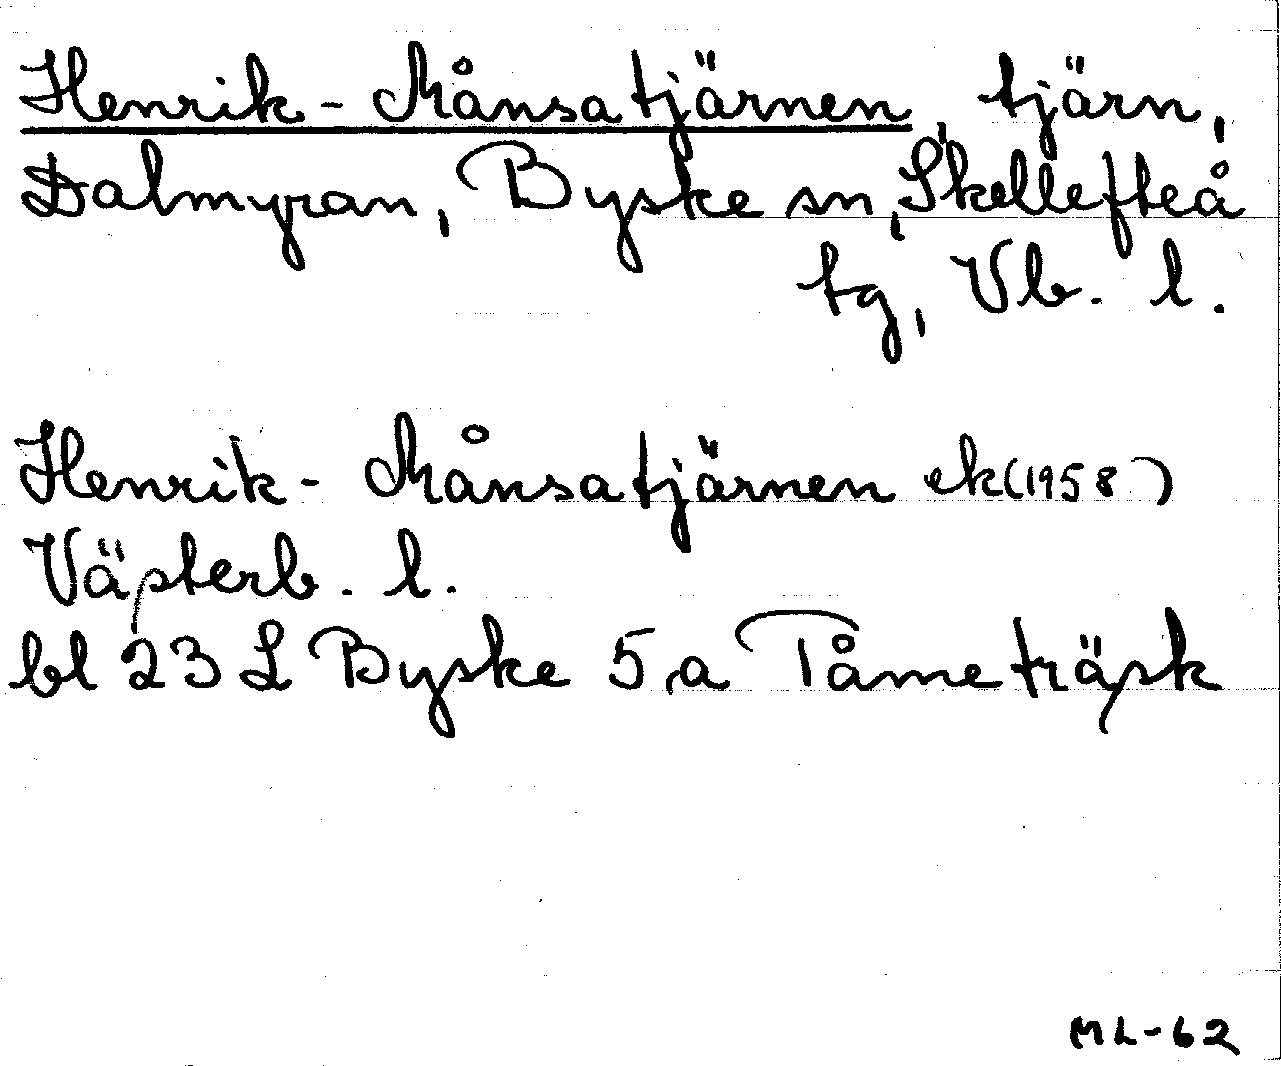 Henrik-Månsatjärnen, tjärn,
Dalmyran, Byske sn, Skellefteå
tg, Vb. l.
Henrik-Månsatjärnen ek (1958)
Västerb. l.
bl 23 L Byske 5,a Tåmeträsk
ML-62